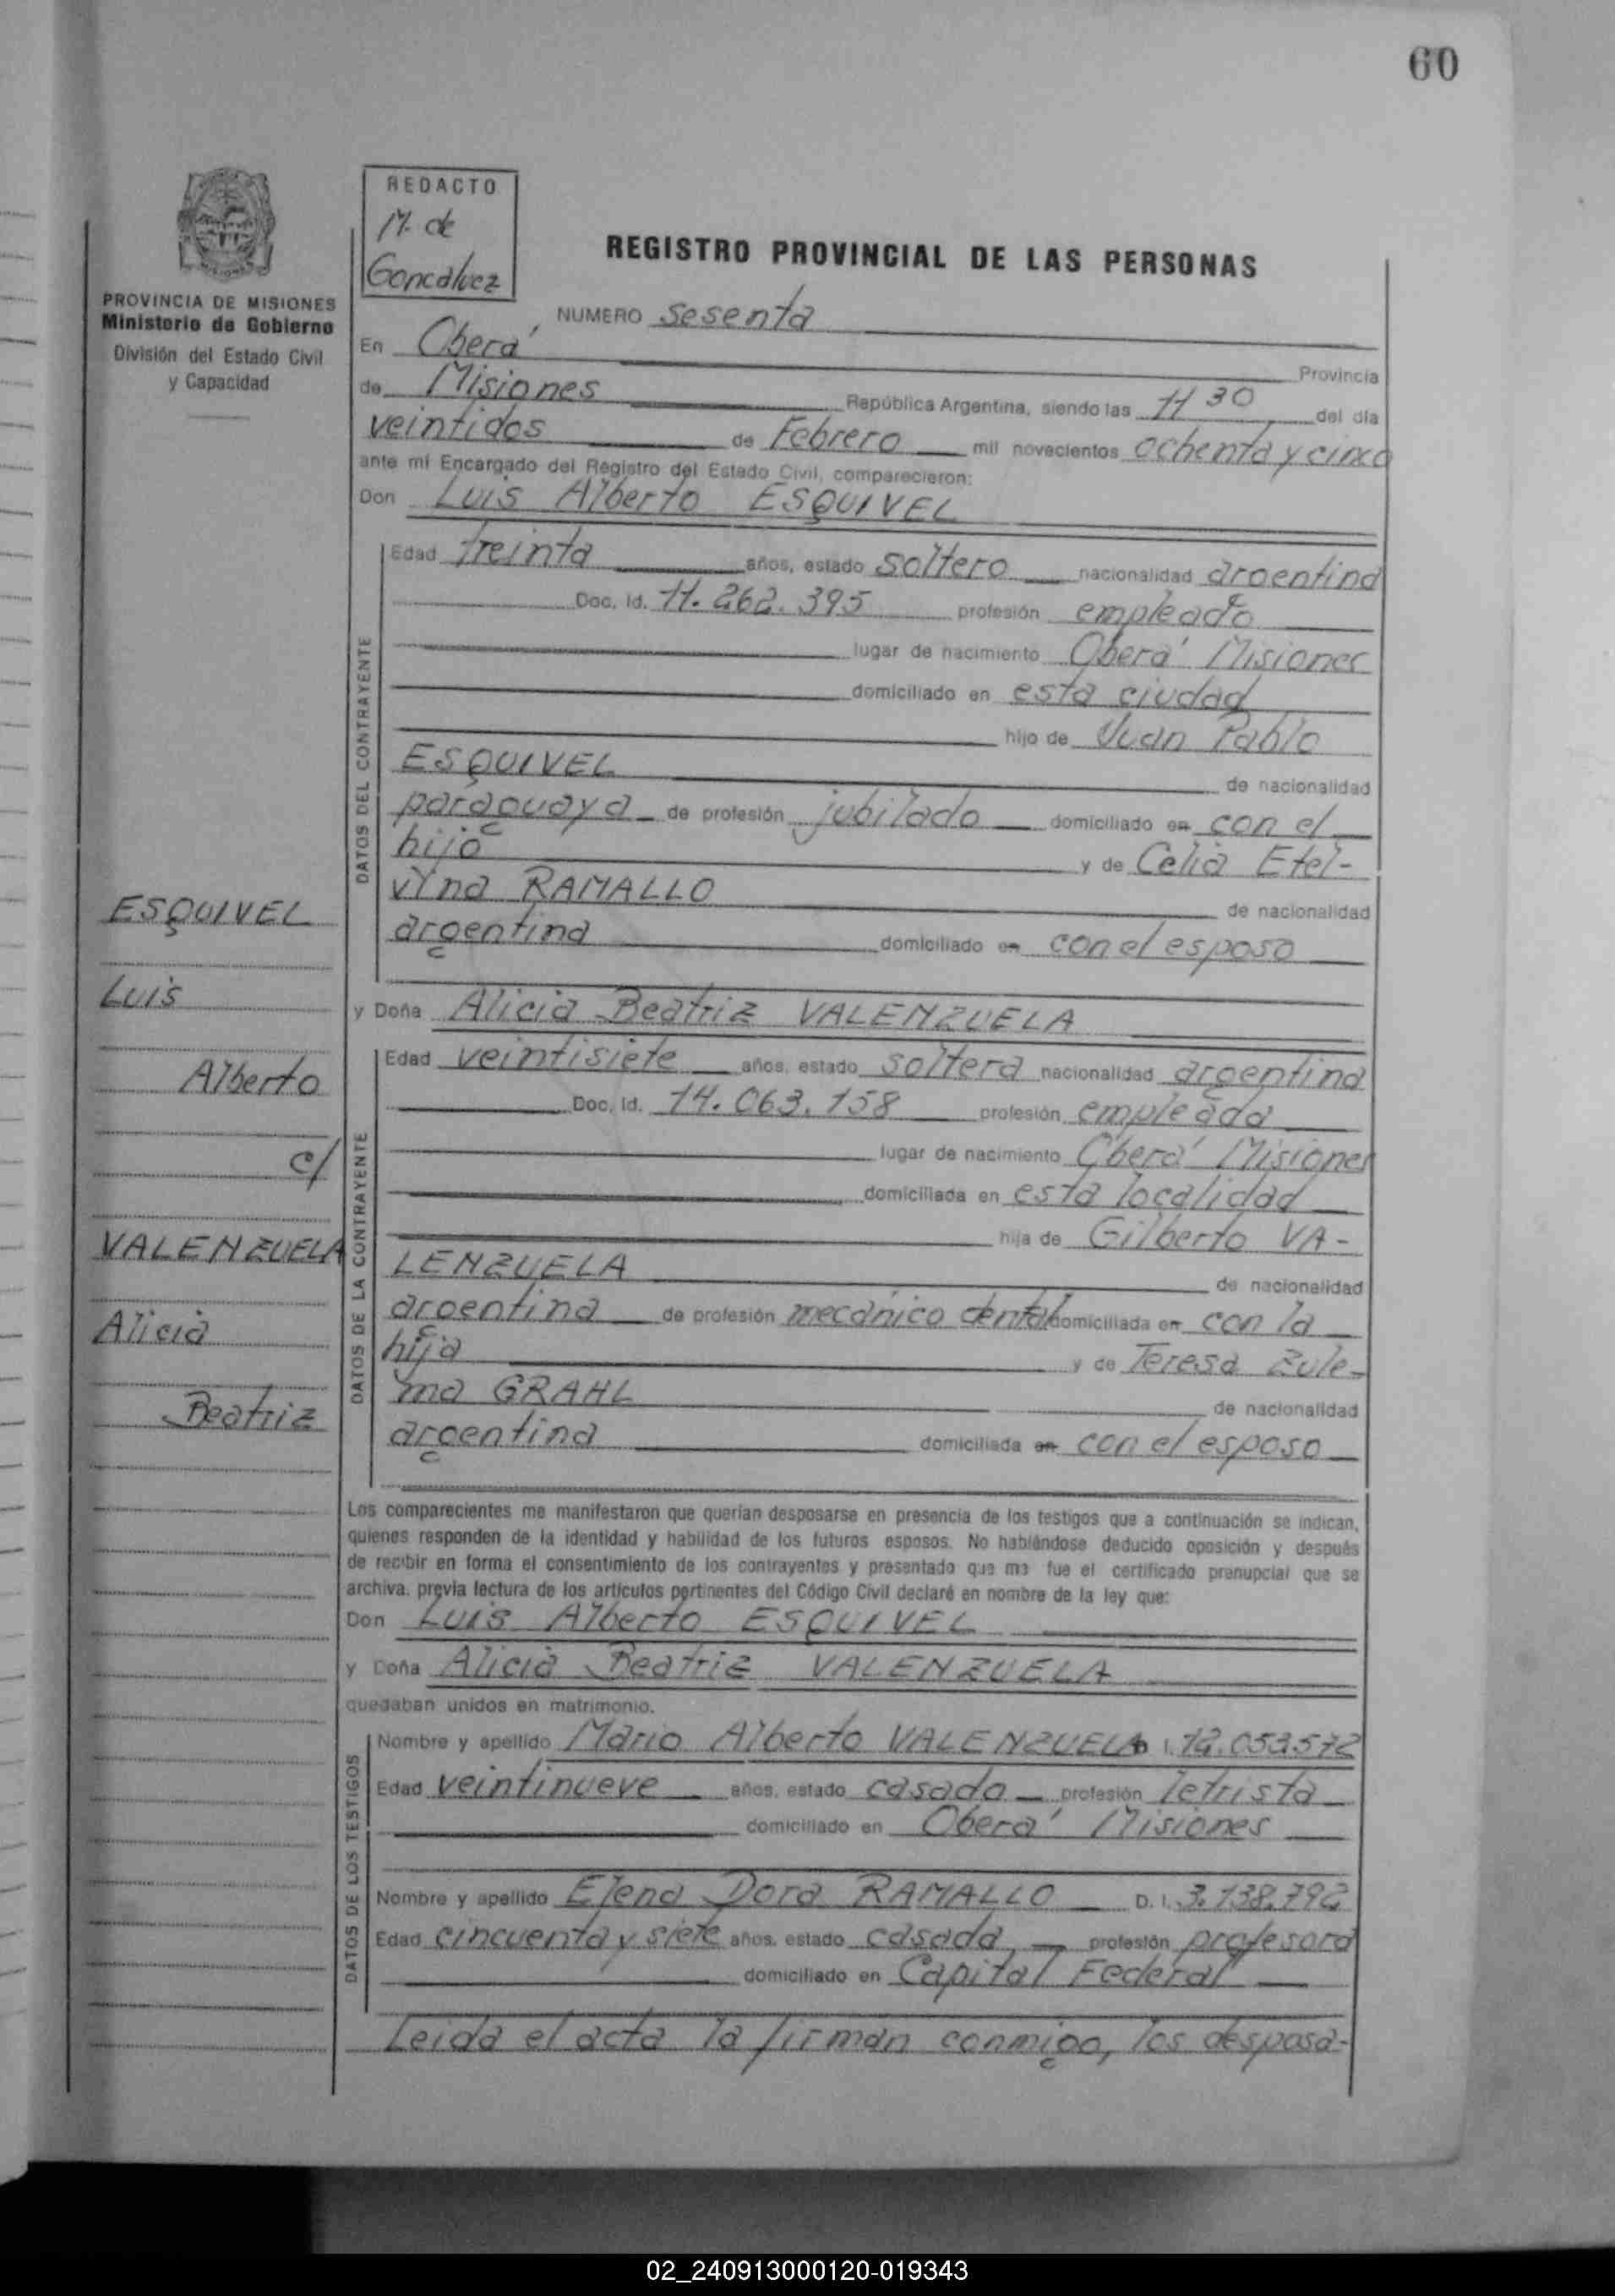 60
REDACTO
M. de
Goncalvez
REGISTRO PROVINCIAL DE LAS PERSONAS
PROVINCIA DE MISIONES
Ministerio de Gobierno
División del Estado Civil
y Capacidad
NUMERO sesenta
En Oberá Provincia
de Misiones República Argentina, siendo las 11 30 del día
veintidos de Febrero mil novecientos ochenta y cinco
ante mí Encargado del Registro del Estado Civil, comparecieron:
Don Luis Alberto ESQUIVEL
DATOS DEL CONTRAYENTE
Edad treinta años, estado soltero nacionalidad argentina
Doc. Id. 11.262.395 profesión empleado
lugar de nacimiento Oberá Misiones
domiciliado en esta ciudad
hijo de Juan Pablo
ESQUIVEL de nacionalidad
paraguaya de profesión jubilado domiciliado en con el
hijo y de Celia Etel-
vina RAMALLO de nacionalidad
argentina domiciliado en con el esposo
y Doña Alicia Beatriz VALENZUELA
DATOS DE LA CONTRAYENTE
Edad veintisiete años, estado soltera nacionalidad argentina
Doc. Id. 14.063.158 profesión empleada
lugar de nacimiento Oberá Misiones
domiciliada en esta localidad
hija de Gilberto VA-
LENZUELA de nacionalidad
argentina de profesión mecánico dental domiciliada en con la
hija y de Teresa Zule-
ma GRAHL de nacionalidad
argentina domiciliada en con el esposo
ESQUIVEL
Luis
Alberto
c/
VALENZUELA
Alicia
Beatriz
Los comparecientes me manifestaron que querían desposarse en presencia de los testigos que a continuación se indican,
quienes responden de la identidad y habilidad de los futuros esposos. No habiéndose deducido oposición y después
de recibir en forma el consentimiento de los contrayentes y presentado que me fue el certificado prenupcial que se
archiva. previa lectura de los artículos pertinentes del Código Civil declaré en nombre de la ley que:
Don Luis Alberto ESQUIVEL
y Doña Alicia Beatriz VALENZUELA
quedaban unidos en matrimonio.
DATOS DE LOS TESTIGOS
Nombre y apellido Mario Alberto VALENZUELA D. I. 12.053.572
Edad veintinueve años, estado casado profesión letrista
domiciliado en Oberá Misiones
Nombre y apellido Elena Dora RAMALLO D. I. 3.138.792
Edad cincuenta y siete años, estado casada profesión profesora
domiciliado en Capital Federal
Leida el acta la firman conmigo, los desposa-
02_240913000120-019343